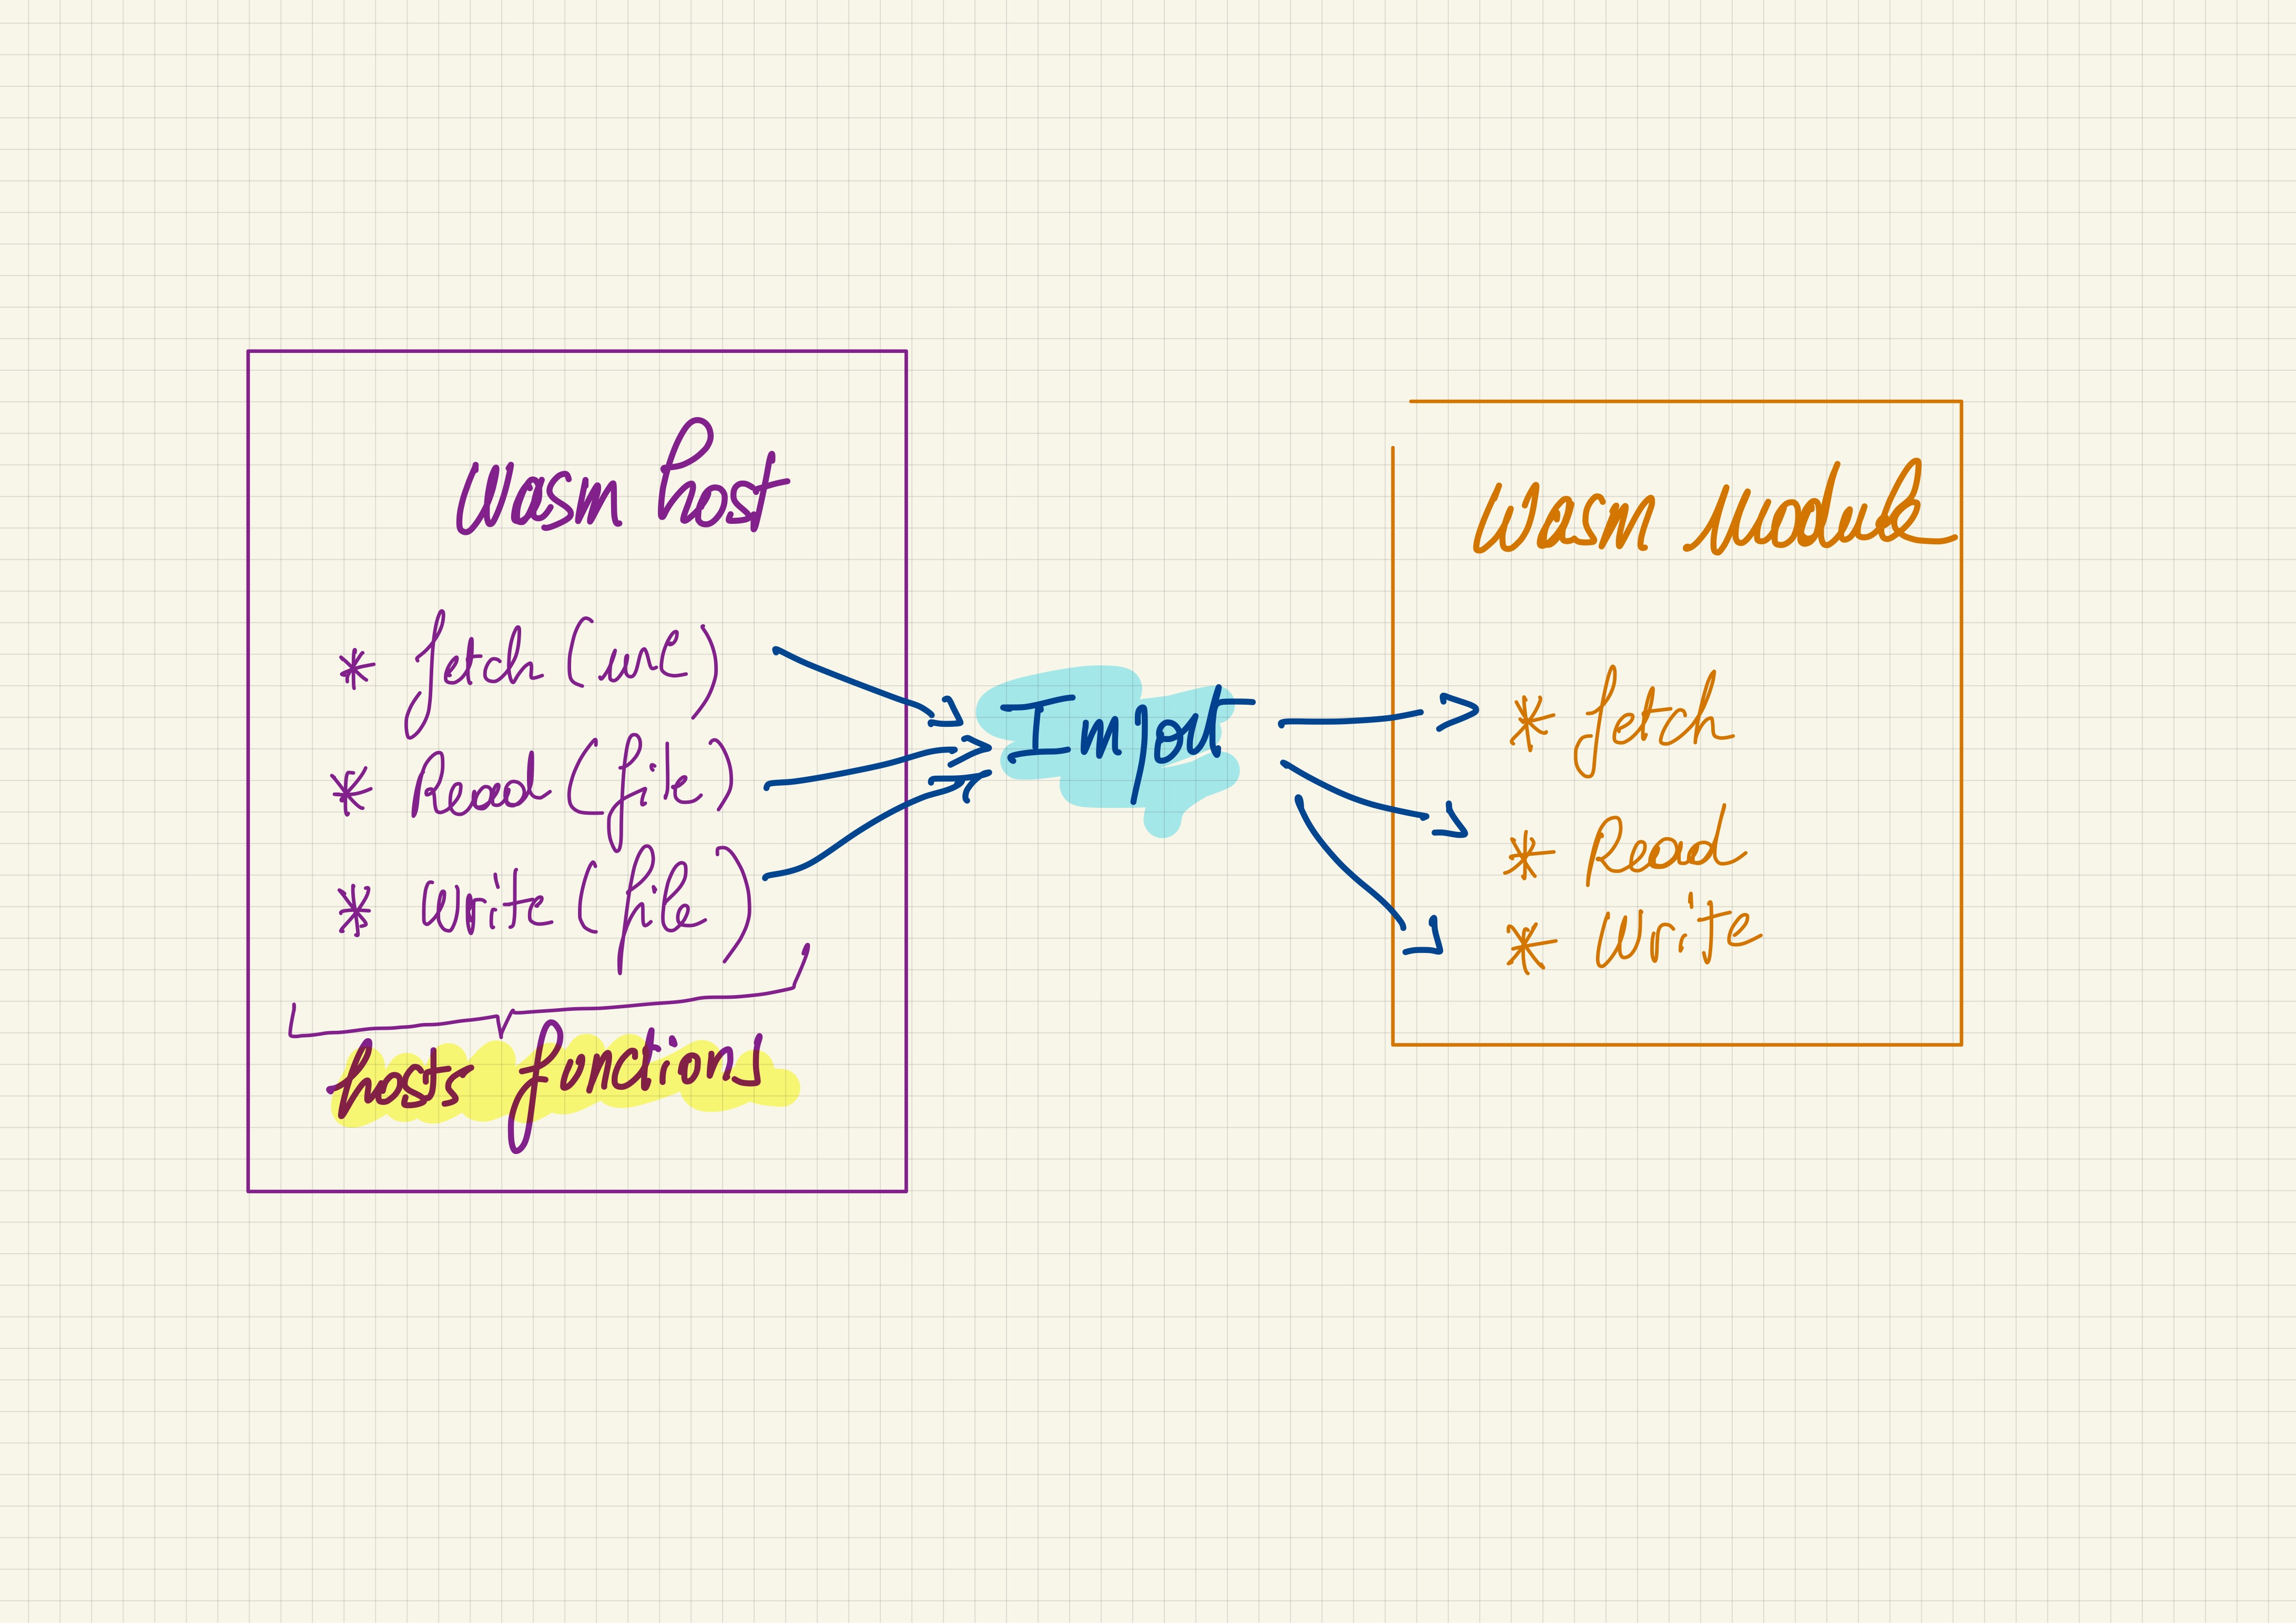 Wasm host
* fetch (url)
* Read (file)
* Write (file)
hosts functions
Import
Wasm Module
* fetch
* Read
* Write